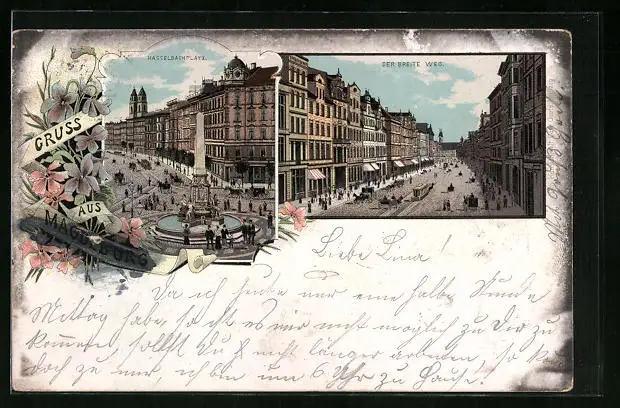 HASSELBACHPLATZ.
DER BREITE WEG.
GRUSS
AUS
MAGDEBURG
Liebe Lina!
Da ich heute nur eine halbe Stunde
Mittag habe, so ist es mir nicht möglich zu Dir zu
kommen, sollst Du nicht länger arbeiten, so
doch zu mir, ich bin um 6 Uhr zu Hause!